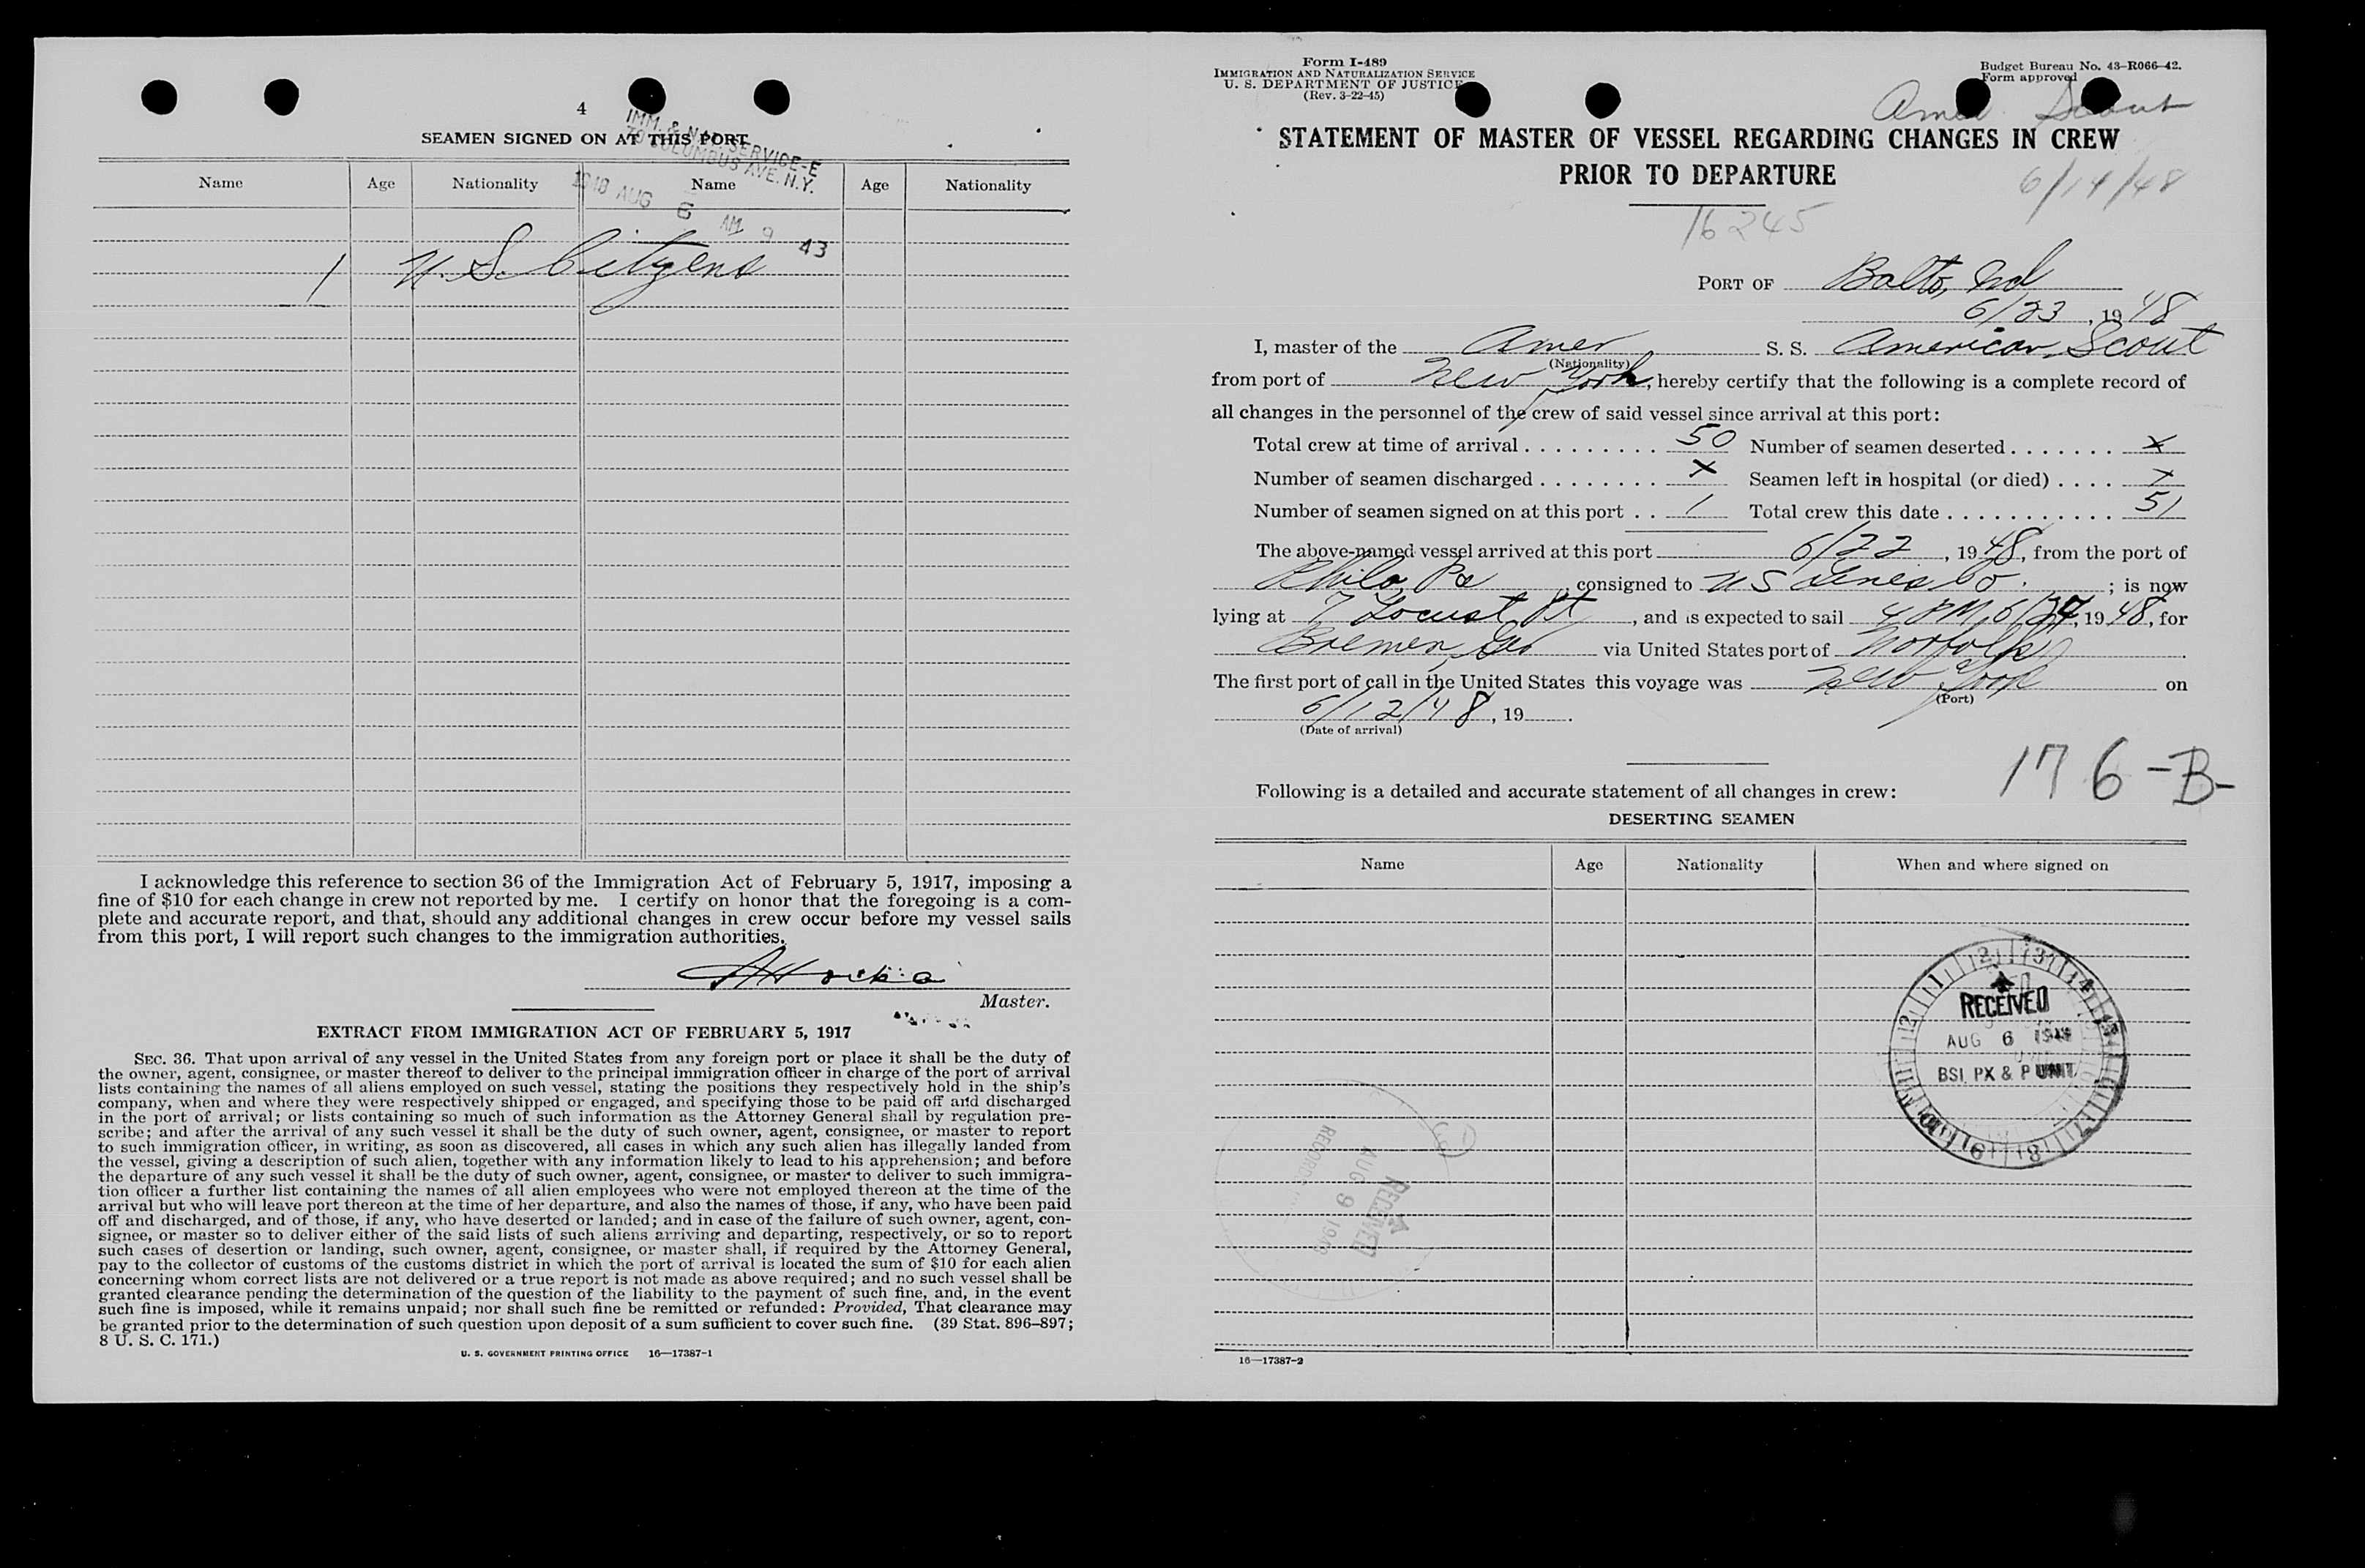 4
SEAMEN SIGNED ON AT THIS PORT
IMM. & NAT. SERVICE-E
70 COLUMBUS AVE. N.Y.
AUG 6 AM 9 43
Name Age Nationality Name Age Nationality
1 U.S. Citizens
I acknowledge this reference to section 36 of the Immigration Act of February 5, 1917, imposing a
fine of $10 for each change in crew not reported by me. I certify on honor that the foregoing is a com-
plete and accurate report, and that, should any additional changes in crew occur before my vessel sails
from this port, I will report such changes to the immigration authorities.
Master.
EXTRACT FROM IMMIGRATION ACT OF FEBRUARY 5, 1917
SEC. 36. That upon arrival of any vessel in the United States from any foreign port or place it shall be the duty of
the owner, agent, consignee, or master thereof to deliver to the principal immigration officer in charge of the port of arrival
lists containing the names of all aliens employed on such vessel, stating the positions they respectively hold in the ship's
company, when and where they were respectively shipped or engaged, and specifying those to be paid off and discharged
in the port of arrival; or lists containing so much of such information as the Attorney General shall by regulation pre-
scribe; and after the arrival of any such vessel it shall be the duty of such owner, agent, consignee, or master to report
to such immigration officer, in writing, as soon as discovered, all cases in which any such alien has illegally landed from
the vessel, giving a description of such alien, together with any information likely to lead to his apprehension; and before
the departure of any such vessel it shall be the duty of such owner, agent, consignee, or master to deliver to such immigra-
tion officer a further list containing the names of all alien employees who were not employed thereon at the time of the
arrival but who will leave port thereon at the time of her departure, and also the names of those, if any, who have been paid
off and discharged, and of those, if any, who have deserted or landed; and in case of the failure of such owner, agent, con-
signee, or master so to deliver either of the said lists of such aliens arriving and departing, respectively, or so to report
such cases of desertion or landing, such owner, agent, consignee, or master shall, if required by the Attorney General,
pay to the collector of customs of the customs district in which the port of arrival is located the sum of $10 for each alien
concerning whom correct lists are not delivered or a true report is not made as above required; and no such vessel shall be
granted clearance pending the determination of the question of the liability to the payment of such fine, and, in the event
such fine is imposed, while it remains unpaid; nor shall such fine be remitted or refunded: Provided, That clearance may
be granted prior to the determination of such question upon deposit of a sum sufficient to cover such fine. (39 Stat. 896–897;
8 U. S. C. 171.)
U. S. GOVERNMENT PRINTING OFFICE 16—17387-1
Form I-489
IMMIGRATION AND NATURALIZATION SERVICE
U. S. DEPARTMENT OF JUSTICE
(Rev. 3-22-45)
Budget Bureau No. 43-R066-42.
Form approved
Amer Scout
STATEMENT OF MASTER OF VESSEL REGARDING CHANGES IN CREW
PRIOR TO DEPARTURE
6/14/48
16245
PORT OF Balto, Md
6/23, 1948
I, master of the Amer S. S. American Scout
(Nationality)
from port of New York, hereby certify that the following is a complete record of
all changes in the personnel of the crew of said vessel since arrival at this port:
Total crew at time of arrival 50 Number of seamen deserted x
Number of seamen discharged x Seamen left in hospital (or died) x
Number of seamen signed on at this port 1 Total crew this date 51
The above-named vessel arrived at this port 6/22, 1948, from the port of
Phila, Pa, consigned to U S Lines Co.; is now
lying at 7 Locust Pt, and is expected to sail 4 PM 6/24, 1948, for
Bremen, Ger via United States port of Norfolk
The first port of call in the United States this voyage was New York on
(Port)
6/12/48, 19
(Date of arrival)
176-B-
Following is a detailed and accurate statement of all changes in crew:
DESERTING SEAMEN
Name Age Nationality When and where signed on
RECEIVED
AUG 6 1948
BSI PX & P UNIT
RECEIVED
AUG 9
16—17387-2